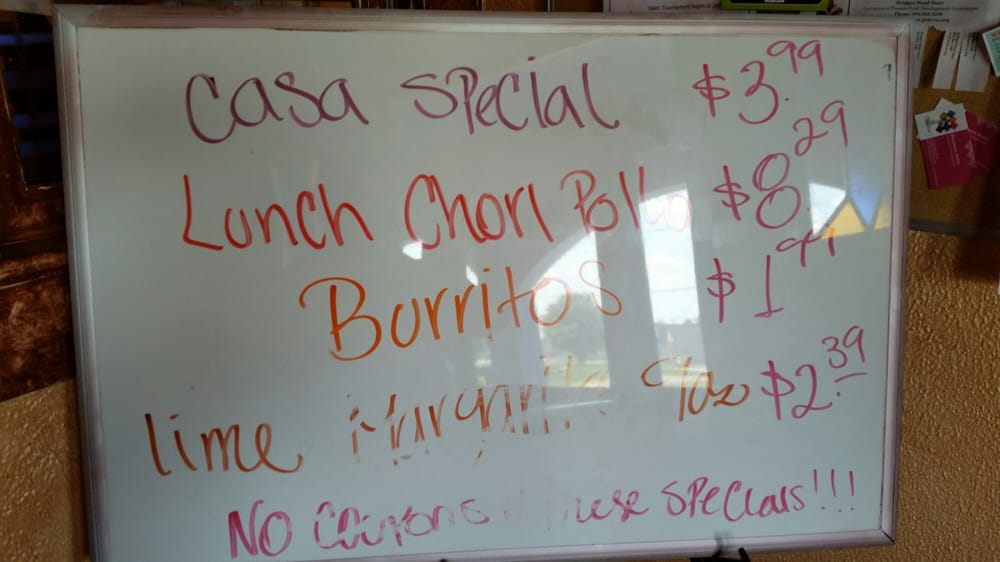 Casa Special $3.99
Lunch Chori Pollo $8.29
Burritos $1.99
lime Margarita 9oz $2.39
NO Coupons these specials!!!